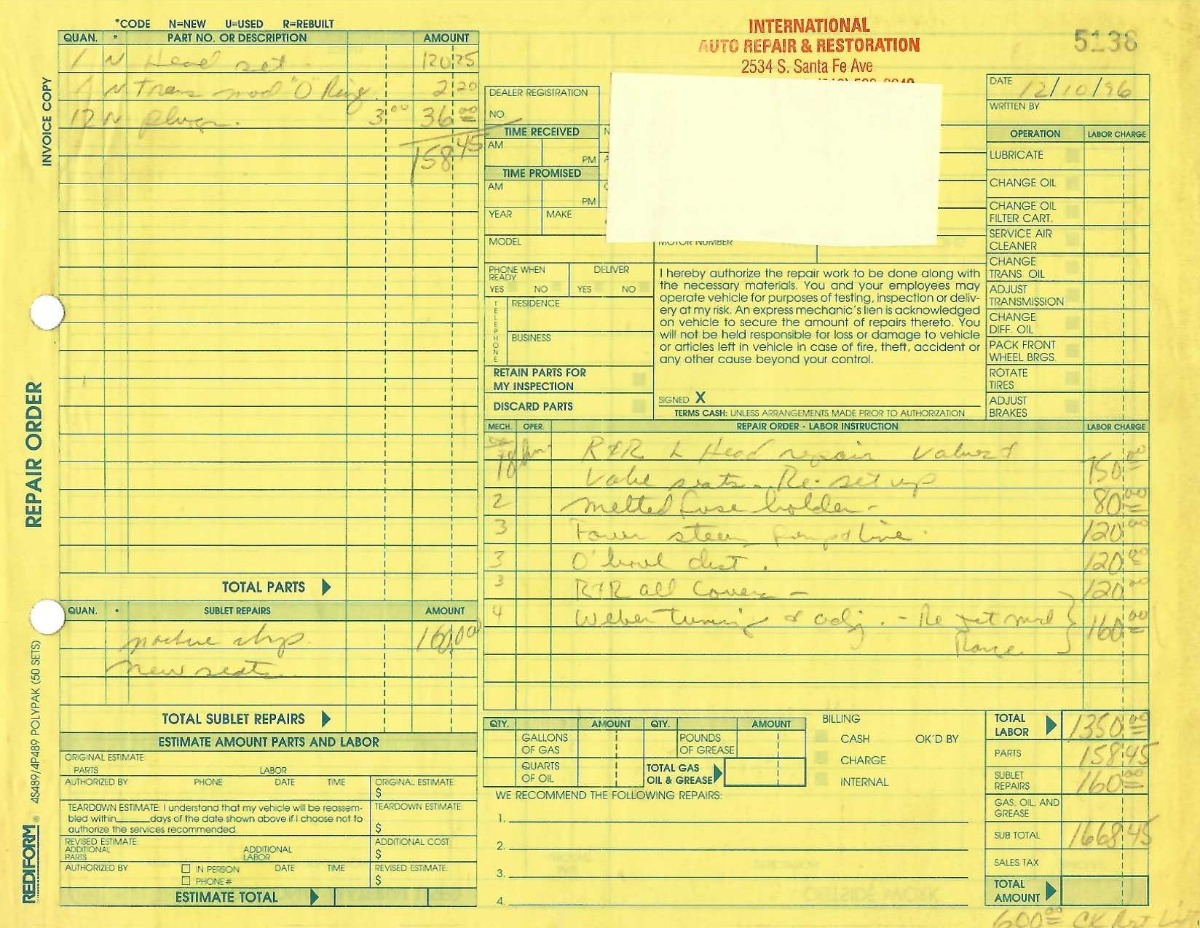 *CODE N=NEW U=USED R=REBUILT
QUAN. * PART NO. OR DESCRIPTION AMOUNT
1 N Head set 120 25
1 N Trans mod "O" Ring 2 20
12 N plugs. 3.00 36 00
158 45
INVOICE COPY
REPAIR ORDER
REDIFORM ® 4S489/4P489 POLYPAK (50 SETS)
TOTAL PARTS
QUAN. * SUBLET REPAIRS AMOUNT
machine shop 160.00
new seats
TOTAL SUBLET REPAIRS
ESTIMATE AMOUNT PARTS AND LABOR
ORIGINAL ESTIMATE
PARTS LABOR
AUTHORIZED BY PHONE DATE TIME ORIGINAL ESTIMATE
$
TEARDOWN ESTIMATE: I understand that my vehicle will be reassem-
bled within ______ days of the date shown above if I choose not to
authorize the services recommended.
TEARDOWN ESTIMATE
$
REVISED ESTIMATE
ADDITIONAL PARTS ADDITIONAL LABOR
ADDITIONAL COST
$
AUTHORIZED BY IN PERSON DATE TIME REVISED ESTIMATE
PHONE# $
ESTIMATE TOTAL
INTERNATIONAL
AUTO REPAIR & RESTORATION
2534 S. Santa Fe Ave
5138
DEALER REGISTRATION
NO
TIME RECEIVED
AM
PM
TIME PROMISED
AM
PM
YEAR MAKE
MODEL
MOTOR NUMBER
DATE 12/10/96
WRITTEN BY
PHONE WHEN READY DELIVER
YES NO YES NO
TELEPHONE
RESIDENCE
BUSINESS
RETAIN PARTS FOR
MY INSPECTION
DISCARD PARTS
I hereby authorize the repair work to be done along with
the necessary materials. You and your employees may
operate vehicle for purposes of testing, inspection or deliv-
ery at my risk. An express mechanic's lien is acknowledged
on vehicle to secure the amount of repairs thereto. You
will not be held responsible for loss or damage to vehicle
or articles left in vehicle in case of fire, theft, accident or
any other cause beyond your control.
SIGNED X
TERMS CASH: UNLESS ARRANGEMENTS MADE PRIOR TO AUTHORIZATION
OPERATION LABOR CHARGE
LUBRICATE
CHANGE OIL
CHANGE OIL
FILTER CART.
SERVICE AIR
CLEANER
CHANGE
TRANS OIL
ADJUST
TRANSMISSION
CHANGE
DIFF. OIL
PACK FRONT
WHEEL BRGS.
ROTATE
TIRES
ADJUST
BRAKES
MECH. OPER. REPAIR ORDER - LABOR INSTRUCTION LABOR CHARGE
R&R L Head repair valves &
valve seats - Re-set up
2 melted fuse holder - 80.00
3 Power steer line 120.00
3 O'haul dist. 120.00
3 R&R all Covers - 120.00
4 Weber tuning & adj. - Re set mid 160.00
Range
QTY. AMOUNT QTY. AMOUNT
GALLONS
OF GAS
POUNDS
OF GREASE
QUARTS
OF OIL
TOTAL GAS
OIL & GREASE
BILLING
CASH OK'D BY
CHARGE
INTERNAL
WE RECOMMEND THE FOLLOWING REPAIRS:
1.
2.
3.
4.
TOTAL LABOR 1350.00
PARTS 158.45
SUBLET REPAIRS 160.00
GAS, OIL, AND GREASE
SUB TOTAL 1668.45
SALES TAX
TOTAL AMOUNT
600.00 CK